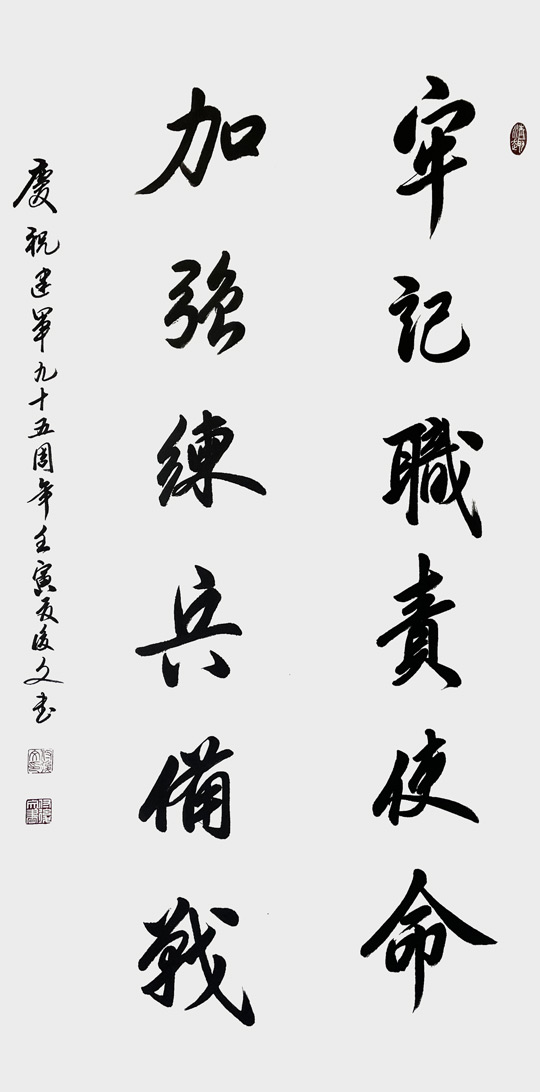 牢記職責使命
加强練兵備戰
慶祝建軍九十五周年壬寅夏俊文书